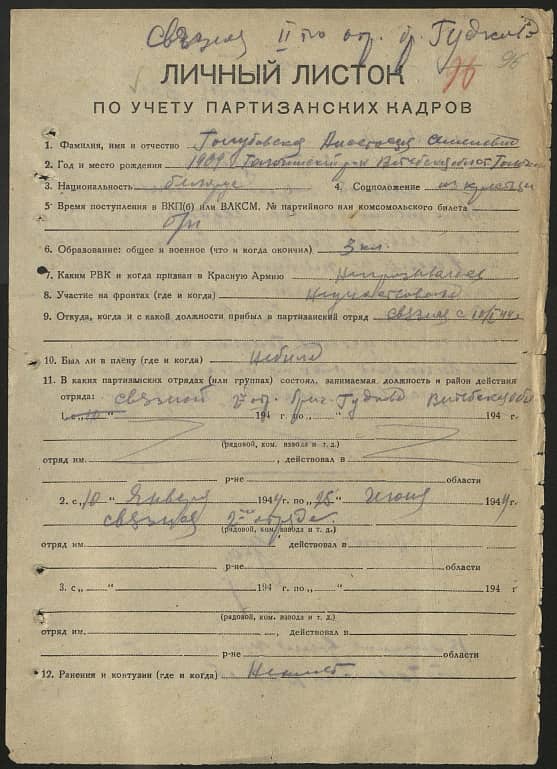 Связная II го от. бр. Гудкова
96
ЛИЧНЫЙ ЛИСТОК
ПО УЧЕТУ ПАРТИЗАНСКИХ КАДРОВ
1. Фамилия, имя и отчество Голубовская Анастасия
2. Год и место рождения 1909 Толочинский р-н Витебская област
3. Национальность белорус 4. Соцположение из крестьян
5. Время поступления в ВКП(б) или ВЛКСМ, № партийного или комсомольского билета
б/п
6. Образование: общее и военное (что и когда окончил) 3 кл.
7. Каким РВК и когда призван в Красную Армию Непризывалась
8. Участие на фронтах (где и когда) Неучаствовала
9. Откуда, когда и с какой должности прибыл в партизанский отряд связная с 10/I 44 г
10. Был ли в плену (где и когда) Небыла
11. В каких партизанских отрядах (или группах) состоял, занимаемая должность и район действия
отряда: связной 2 от. бриг. Гудкова Витебск. обл
1. с „10“ 194 г. по „ “ 194 г.
(рядовой, ком. взвода и т. д.)
отряд им. , действовал в
р-не области
2. с „10“ Января 1944 г. по „25“ Июня 1944 г.
связная 2го отряда.
(рядовой, ком. взвода и т. д.)
отряд им. , действовал в
р-не области
3. с „ “ 194 г. по „ “ 194 г.
(рядовой, ком. взвода и т. д.)
отряд им. , действовал в
р-не области
12. Ранения и контузии (где и когда) Неимеет.